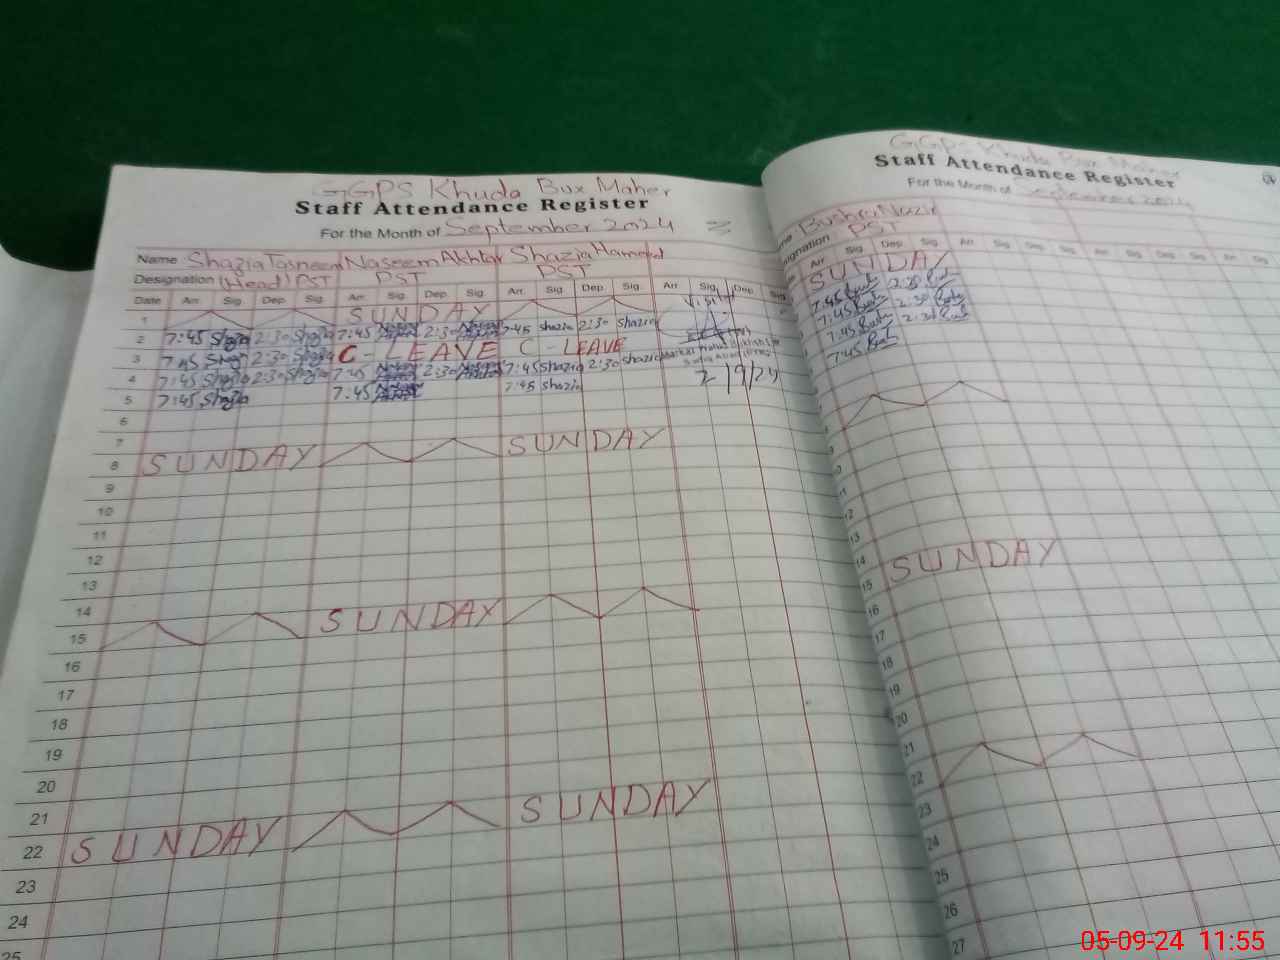 GGPS Khuda Bux Maher
Staff Attendance Register
For the Month of September 2024
Name Shazia Tasneem Naseem Akhtar Shazia Hameed
Designation (Head) PST PST PST
Date Arr. Sig. Dep. Sig. Arr. Sig. Dep. Sig. Arr. Sig. Dep. Sig. Arr. Sig. Dep. Sig.
1 SUNDAY Visit
2 7:45 Shazia 2:30 Shazia 7:45 2:30 7:45 Shazia 2:30 Shazia
3 7:45 Shazia 2:30 Shazia C-LEAVE C-LEAVE
4 7:45 Shazia 2:30 Shazia 7:45 2:30 7:45 Shazia 2:30 Shazia
5 7:45 Shazia 7:45 7:45 Shazia 2/9/24
6
7
8 SUNDAY SUNDAY
9
10
11
12
13
14
15 SUNDAY
16
17
18
19
20
21
22 SUNDAY SUNDAY
23
24
25
GGPS Khuda Bux Maher
Staff Attendance Register
For the Month of September 2024
Bushra Nazir
PST
Arr. Sig. Dep. Sig. Arr. Sig. Dep. Sig.
SUNDAY
7:45 2:30
7:45 2:30
7:45 2:30
7:45
11
12
13
14
15 SUNDAY
16
17
18
19
20
21
22
23
24
25
26
27
05-09-24 11:55